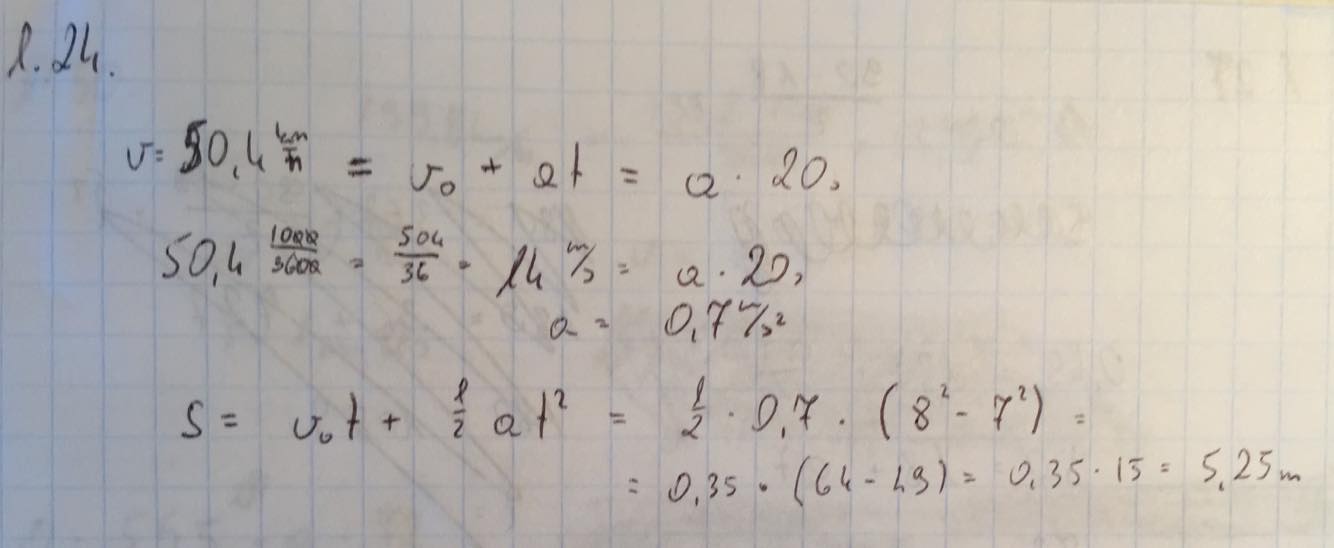 1.24.
v = 50,4 km/h = v₀ + at = a · 20s
50,4 1000/3600 = 504/36 = 14 m/s = a · 20s
a = 0,7 m/s²
S = v₀t + 1/2 at² = 1/2 · 0,7 · (8² - 7²) =
= 0,35 · (64 - 49) = 0,35 · 15 = 5,25 m